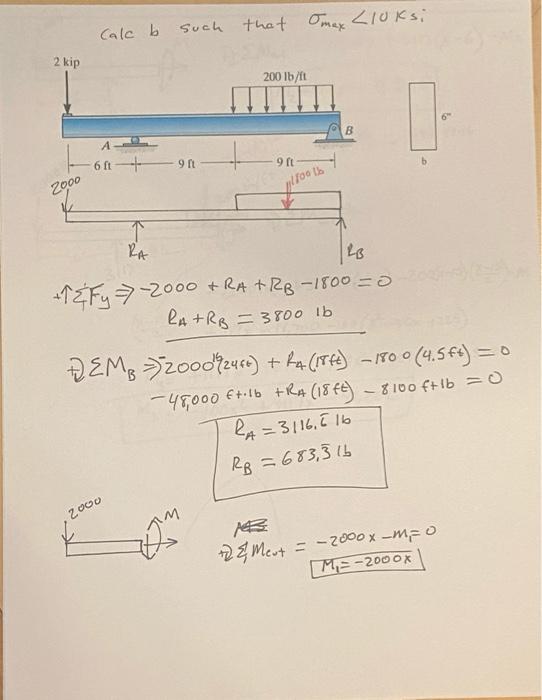 Calc b such that σmax < 10 Ksi
2 kip
200 lb/ft
A
B
6"
b
6 ft
9 ft
9 ft
2000
1800 lb
RA
RB
+↑ΣFy ⇒ -2000 + RA + RB - 1800 = 0
RA + RB = 3800 lb
ΣMB ⇒ -2000 lb (24 ft) + RA (18 ft) - 1800 (4.5 ft) = 0
-48,000 ft·lb + RA (18 ft) - 8100 ft·lb = 0
RA = 3116.6̅ lb
RB = 683.3̅ lb
2000
M
ΣMcut = -2000x - M1 = 0
M1 = -2000x